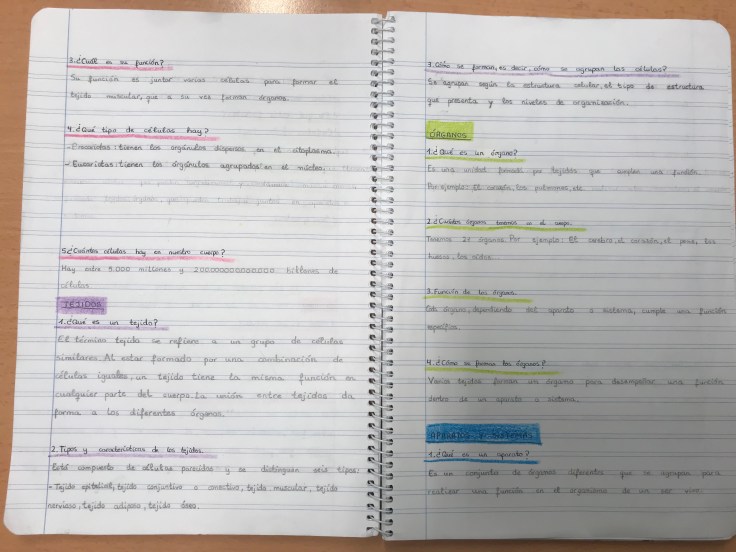 3.¿Cuál es su función?
Su función es juntar varias células para formar el
tejido muscular, que a su vez forman órganos.
4.¿Qué tipo de células hay?
-Procariotas: tienen los orgánulos dispersos en el citoplasma.
-Eucariotas: tienen los orgánulos agrupados en el núcleo.
5.¿Cuántas células hay en nuestro cuerpo?
Hay entre 5.000 millones y billones de
células.
TEJIDOS
1.¿Qué es un tejido?
El término tejido se refiere a un grupo de células
similares. Al estar formado por una combinación de
células iguales, un tejido tiene la misma función en
cualquier parte del cuerpo. La unión entre tejidos da
forma a los diferentes órganos.
2.Tipos y características de los tejidos.
Está compuesto de células parecidas y se distinguen seis tipos:
-Tejido epitelial, tejido conjuntivo o conectivo, tejido muscular, tejido
nervioso, tejido adiposo, tejido óseo.
3.¿Cómo se forman, es decir, cómo se agrupan las células?
Se agrupan según la estructura celular, el tipo de estructura
que presenta y los niveles de organización.
ÓRGANOS
1.¿Qué es un órgano?
Es una unidad formada por tejidos que cumplen una función.
Por ejemplo: El corazón, los pulmones, etc.
2.¿Cuántos órganos tenemos en el cuerpo?
Tenemos órganos. Por ejemplo: El cerebro, el corazón, el pene, los
huesos, los
3.Función de los órganos.
Cada órgano, dependiendo del aparato o sistema, cumple una función
específica.
4.¿Cómo se forman los órganos?
Varios tejidos forman un órgano para desempeñar una función
dentro de un aparato o sistema.
APARATOS Y SISTEMAS
1.¿Qué es un aparato?
Es un conjunto de órganos diferentes que se agrupan para
realizar una función en el organismo de un ser vivo.